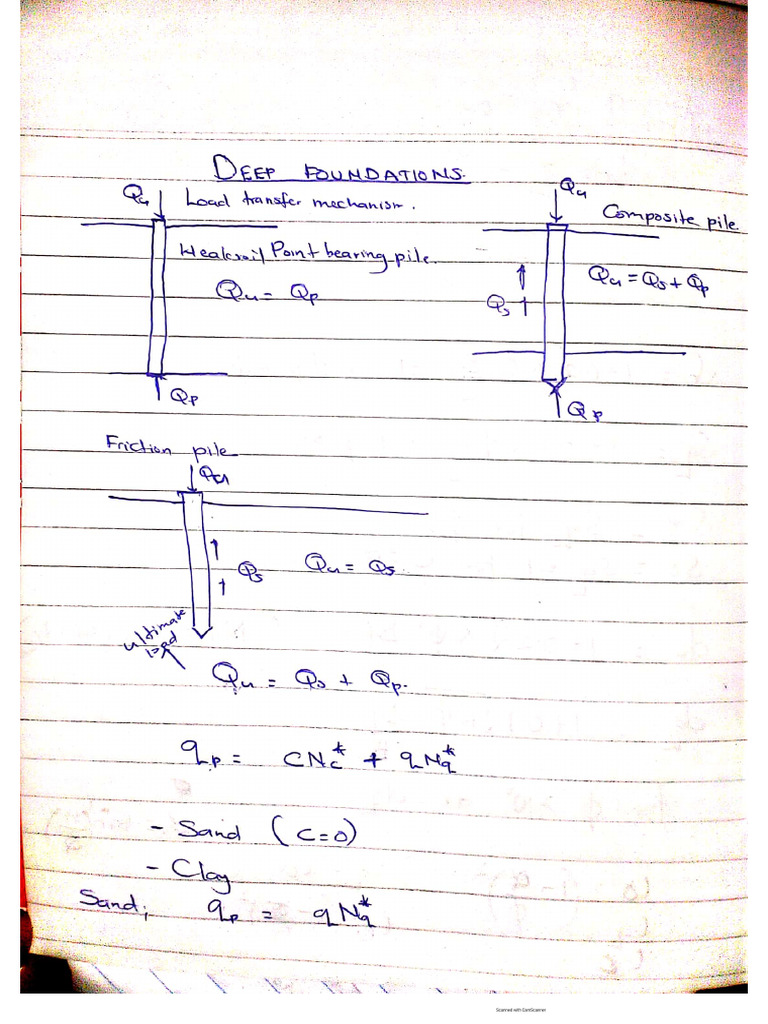 DEEP FOUNDATIONS.
Qu Load transfer mechanism.
Weak soil Point bearing pile.
Qu = Qp
Qp
Qu
Composite pile
Qu = Qs + Qp
Qs
Qp
Friction pile
Qu
Qs
Qu = Qs.
ultimate
load
Qu = Qs + Qp.
qp = CNc* + qNq*
- Sand (C=0)
- Clay
Sand; qp = qNq*
Scanned with CamScanner